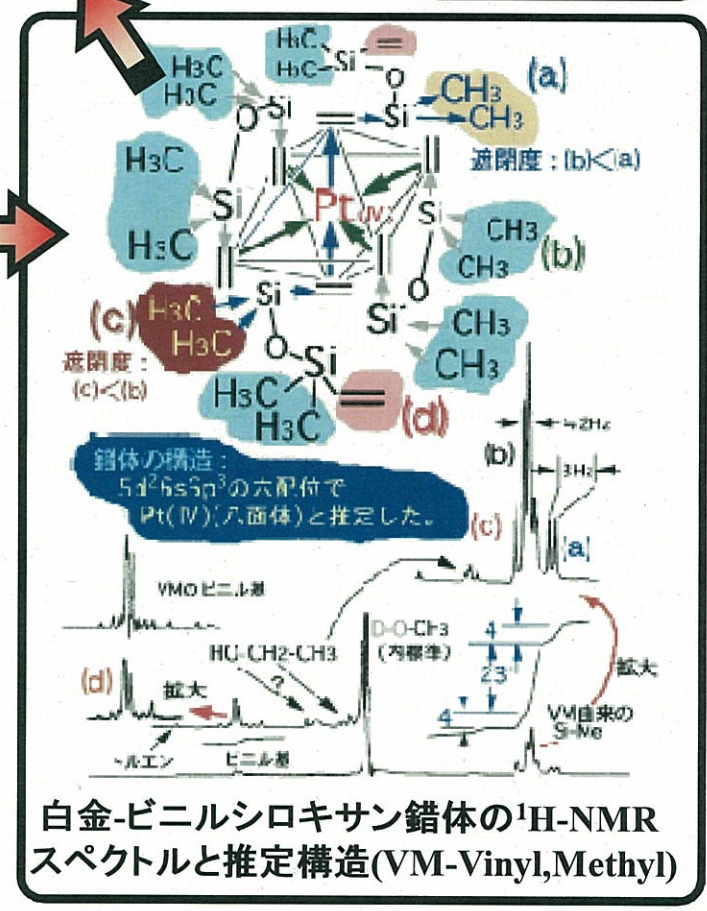 H3C
H3C
Si
O
(a)
H3C
H3C
Si
O
Si
CH3
CH3
遮閉度：(b)<(a)
H3C
Si
H3C
Pt(IV)
Si
CH3
CH3
(b)
O
(c)
H3C
H3C
Si
遮閉度：
(c)<(b)
Si
CH3
CH3
O
Si
H3C
H3C
(d)
錯体の構造：
5d²6s6p³の六配位で
Pt(IV)(八面体)と推定した。
(b)
≒2Hz
3Hz
(c)
(a)
VMのビニル基
HO-CH2-CH3
?
D-O-CH3
(内標準)
4
23
4
(d)
拡大
トルエン
ビニル基
拡大
VM由来の
Si-Me
白金-ビニルシロキサン錯体の¹H-NMR
スペクトルと推定構造(VM-Vinyl,Methyl)